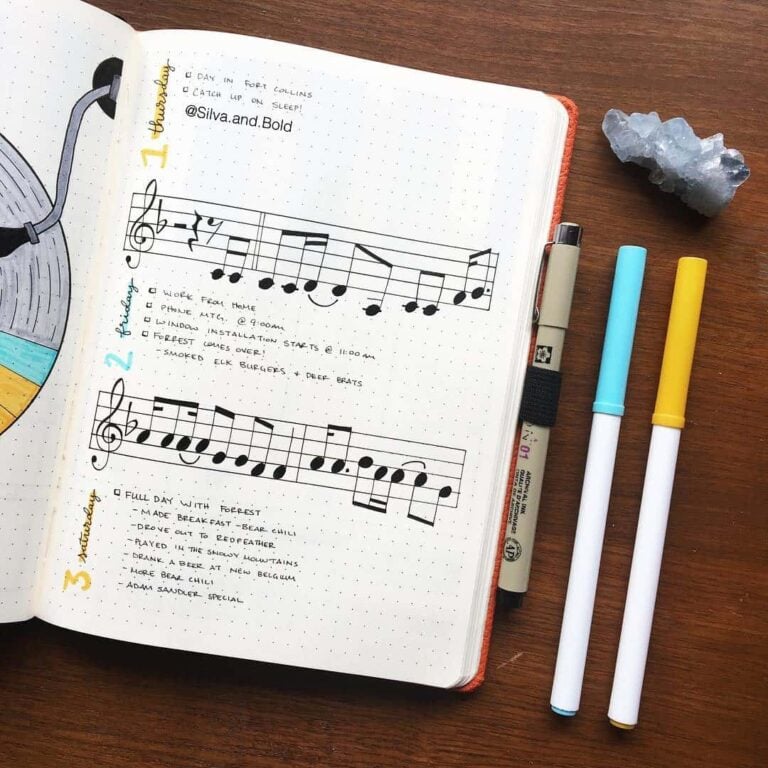 1 thursday
DAY IN FORT COLLINS
CATCH UP ON SLEEP!
@Silva.and.Bold
2 friday
WORK FROM HOME
PHONE MTG. @ 9:00am
WINDOW INSTALLATION STARTS @ 11:00am
FORREST COMES OVER!
- SMOKED ELK BURGERS + DEER BRATS
3 saturday
FULL DAY WITH FORREST
- MADE BREAKFAST - BEAR CHILI
- DROVE OUT TO REDFEATHER
- PLAYED IN THE SNOWY MOUNTAINS
- DRANK A BEER AT NEW BELGIUM
- MORE BEAR CHILI
- ADAM SANDLER SPECIAL
01
ARCHIVAL INK
AP